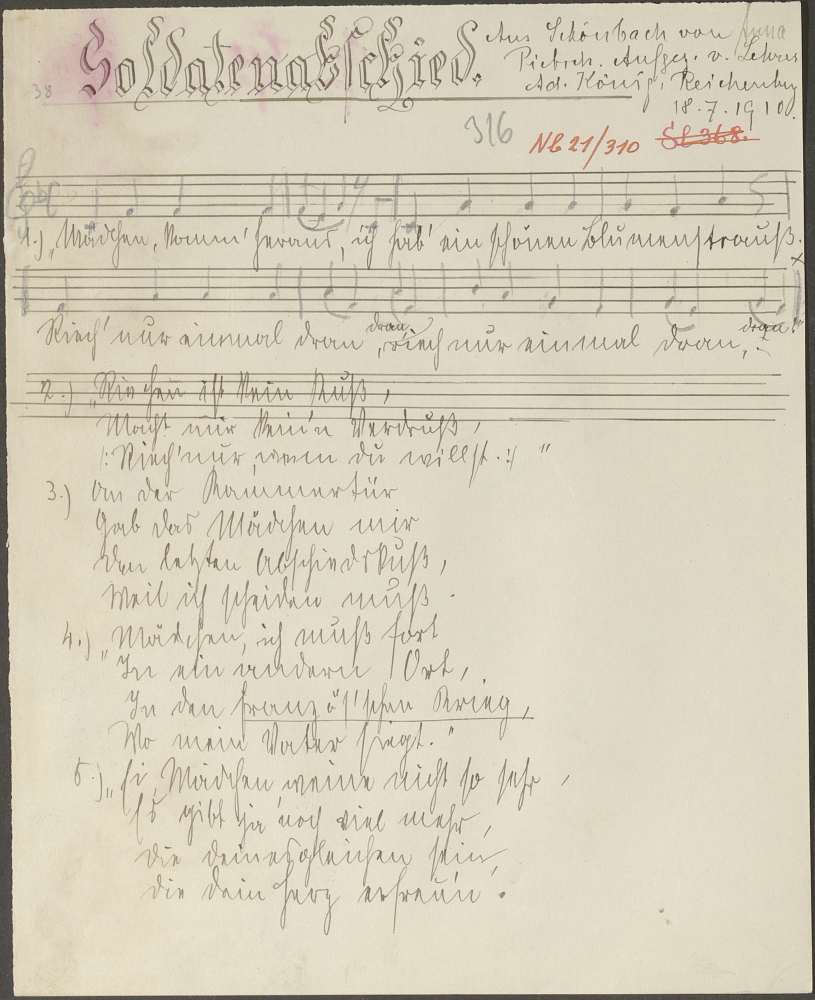 Soldatenabschied.
Aus Schönbach von Anna
Pietsch. Aufgez. v. Lehrer
Ad. König, Reichenbg
18.7.1910.
38
316
Nb 21/310 Sb 368.
1.) „Mädchen, komm' heraus, ich hab' ein schönen Blumenstrauß.
Riech' nur einmal dran, dran, riech nur einmal dran, dran!"
2.) „Riechen ist kein Kuß,
Macht mir kein'n Verdruß,
/: Riech' nur, wenn du willst. :/ "
3.) An der Kammertür
Gab das Mädchen mir
Den letzten Abschiedskuß,
Weil ich scheiden muß.
4.) „Mädchen, ich muß fort
In ein andern Ort,
In den französ'schen Krieg,
Wo mein Vater siegt."
5.) „Ei, Mädchen weine nicht so sehr,
Es gibt ja noch viel mehr,
Die deinesgleichen sein,
Die dein Herz erfreu'n.